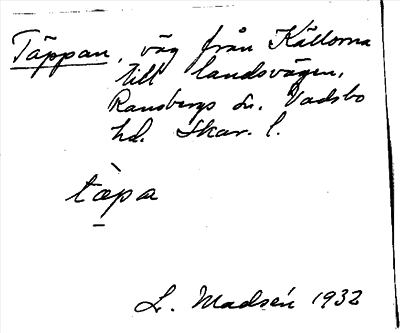 Täppan, väg från Källorna
till landsvägen,
Ransbergs sn. Vadsbo
hd. Skar. l.
tæ̀pa
L. Madsén 1932